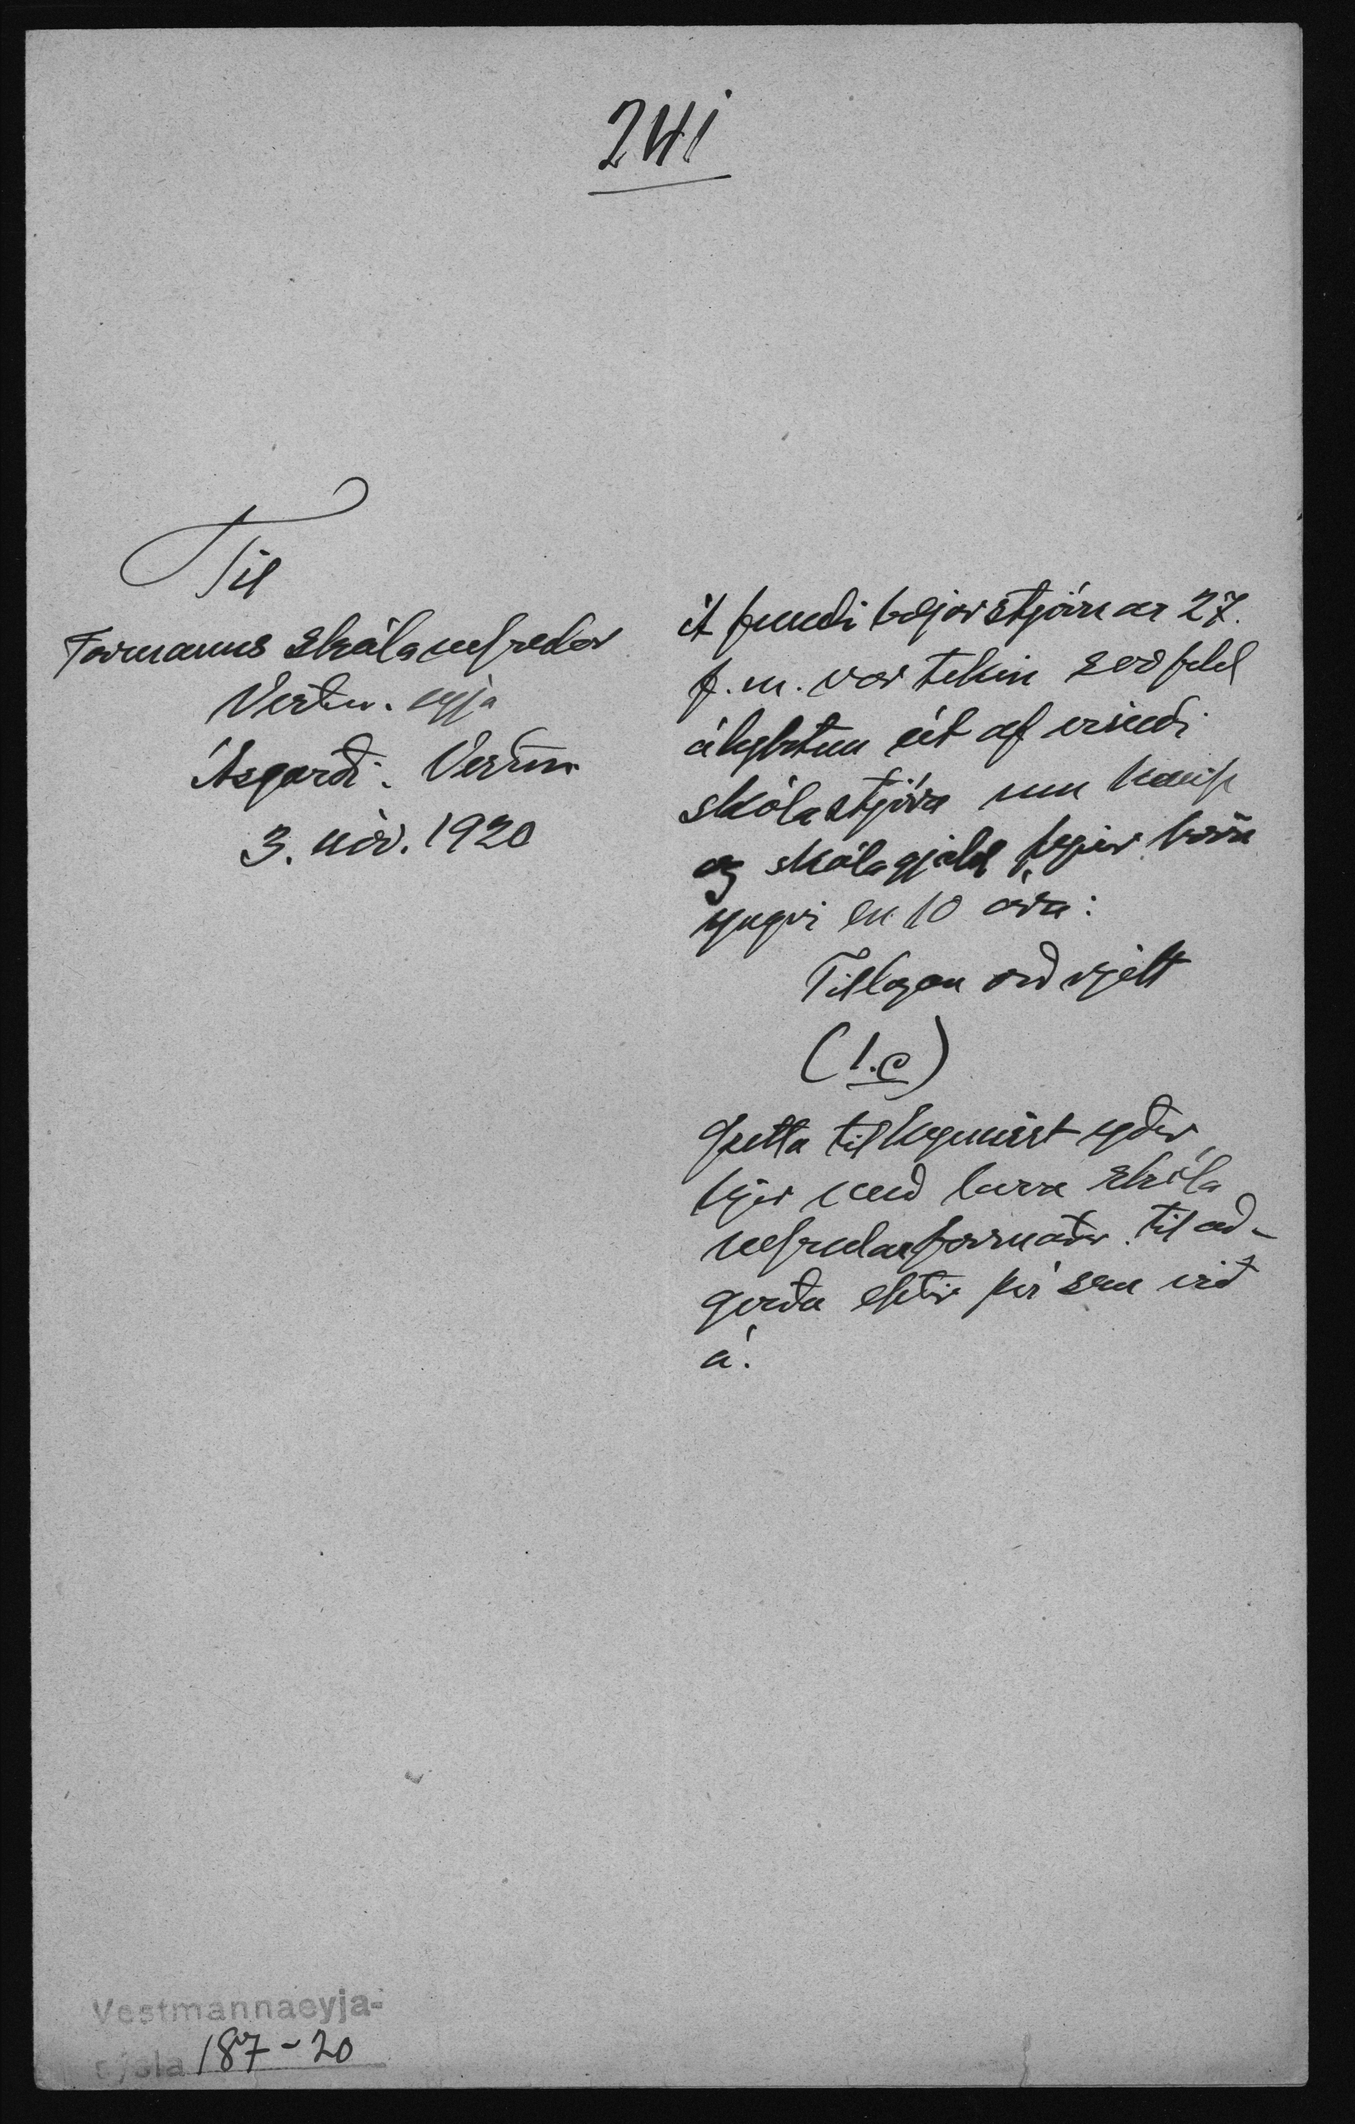 241
Til
Formanns skólanefndar
Vestm. eyja
Ásgarði. Vestm
3. nóv. 1920
Á fundi bæjarstjórnar 27.
f. m. var tekin svofeld
ályktun út af erindi
skólastjóra um kaup
og skólagjald fyrir börn
yngri en 10 ára:
Tillagan orðrjett
(1.c)
Þetta tilkynnist yður
hjer með herra skóla
nefndarformaður til að-
gerða eftir því sem við
á.
Vestmannaeyja-
sýsla 187-20